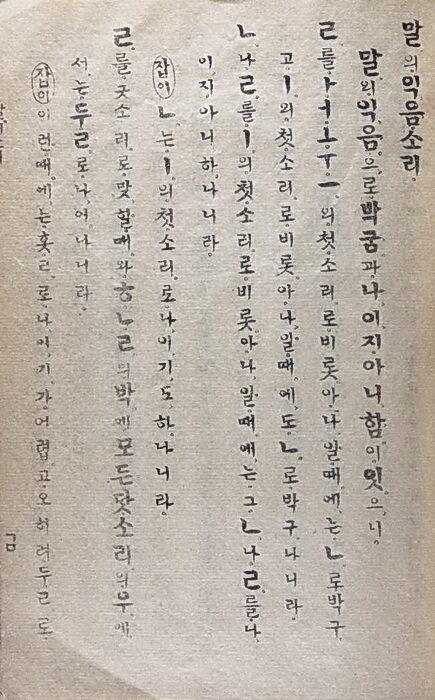 말의익음소리
말의익음으로박굼과나이지아니함이잇으니
ㄹ를ㅏㅓㅗㅜㅡ의첫소리로비롯아나일때에는ㄴ로박구
고ㅣ의첫소리로비롯아나일때에도ㄴ로박구나니라
ㄴ나ㄹ를ㅣ의첫소리로비롯아나일때에는그ㄴ나ㄹ를나
이지아니하나니라
잡이ㄴ는ㅣ의첫소리로나이기도하나니라
ㄹ를굿소리로맞힐때와ㅎㄴㄹ의박에모든닷소리의우에
서는두ㄹ로나이나니라
잡이이런때에는홋ㄹ로나이기가어렵고오히려두ㄹ로